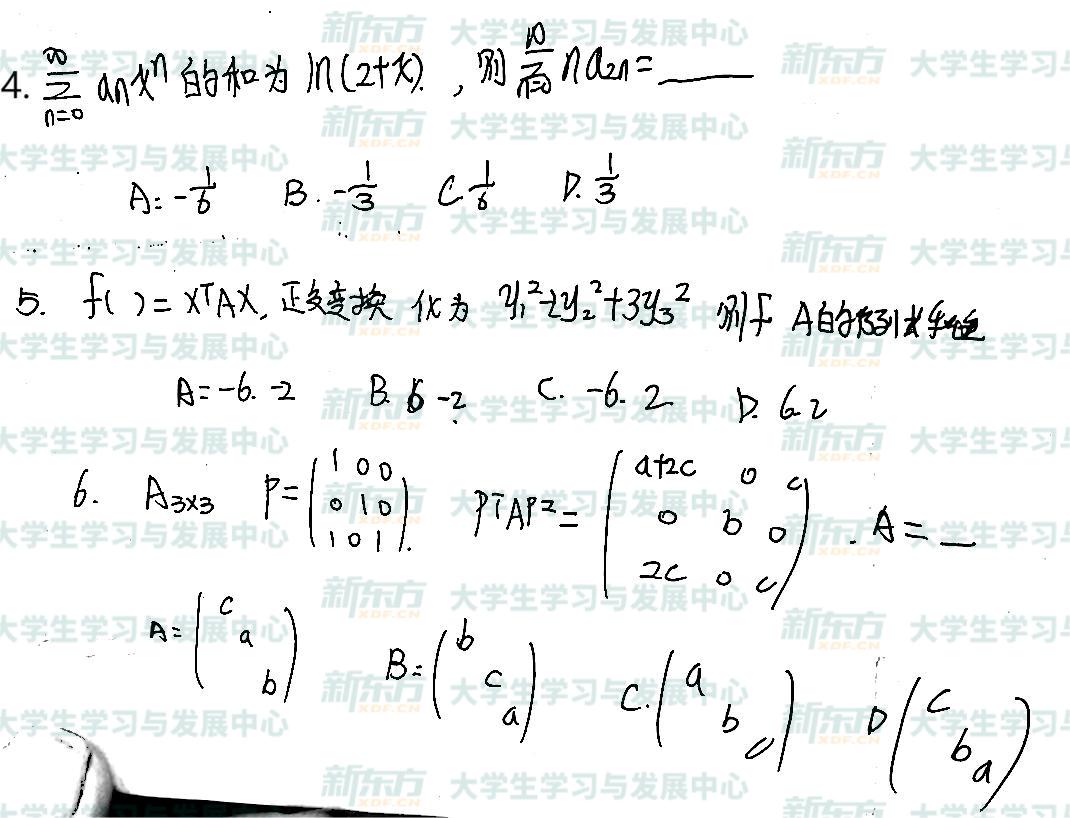 4. ∑_{n=0}^{∞} aₙxⁿ 的和为 ln(2+x). , 则 ∑_{n=0}^{∞} n a₂ₙ = ____
A: -1/6 B. -1/3 C. 1/6 D. 1/3
5. f( ) = XᵀAX, 正交变换 化为 y₁²-2y₂²+3y₃² 则f A的行列式
A: -6. -2 B. 6 -2 C. -6. 2 D. 6 2
6. A₃ₓ₃ P = (1 0 0; 0 1 0; 1 0 1). PᵀAP² = (a+2c 0 c; 0 b 0; 2c 0 c) . A = __
A: (c a b) B: (b c a) C. (a b c) D (c b a)
新东方 XDF.CN 大学生学习与发展中心